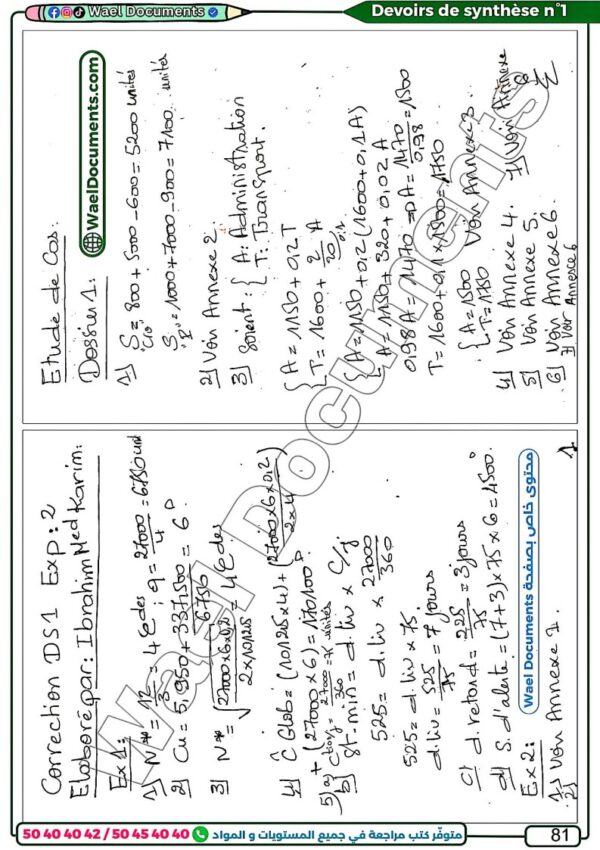 Wael Documents
Devoirs de synthèse n°1
Correction DS1 Exp: 2
Elaboré par: Ibrahim Med Karim.
Ex 1:
1) N* = 12/3 = 4 Cdes ; q = 27000/4 = 6750 und
2) Cu = 5,950 + 337,500/6750 = 6 D
3) N* = √(27000x6x0,2 / 2x10125) = 4 Cdes
4) Ĉ Glob = (10125x4) + (27000x6x0,2 / 2x4)
+ (27000x6) = 170100 D
5) a) C = 27000/360 = 75 unités
b) St. min = d.liv x C/j
525 = d.liv x 27000/360
525 = d.liv x 75
d.liv = 525/75 = 7 jours
c) d. retard = 225/75 = 3 jours
d) S. d'alerte = (7+3)x75x6 = 4500 D
Ex 2:
1) Voir Annexe 1.
2)
1
محتوى خاص بصفحة Wael Documents
WaelDocuments.com
Etude de Cas:
Dossier 1:
1) S = 800 + 5000 - 600 = 5200 unités
S = 1000 + 7000 - 900 = 7100 unités
2) Voir Annexe 2.
3) Soient: { A: Administration
T: Transport.
{ A = 1150 + 0,2T
T = 1600 + 2/20 A
0,1
{ A = 1150 + 0,2(1600 + 0,1A)
{ A = 1150 + 320 + 0,02A
0,98A = 1470 => A = 1470/0,98 = 1500
T = 1600 + 0,1 x 1500 = 1750
{ A = 1500
T = 1750
Voir Annexe 3.
4) Voir Annexe 4.
5) Voir Annexe 5.
6) Voir Annexe 6.
7) Voir Annexe 6
7) Voir Annexe
Wael Documents
50 40 40 42 / 50 45 40 40
متوفّر كتب مراجعة في جميع المستويات و المواد
81